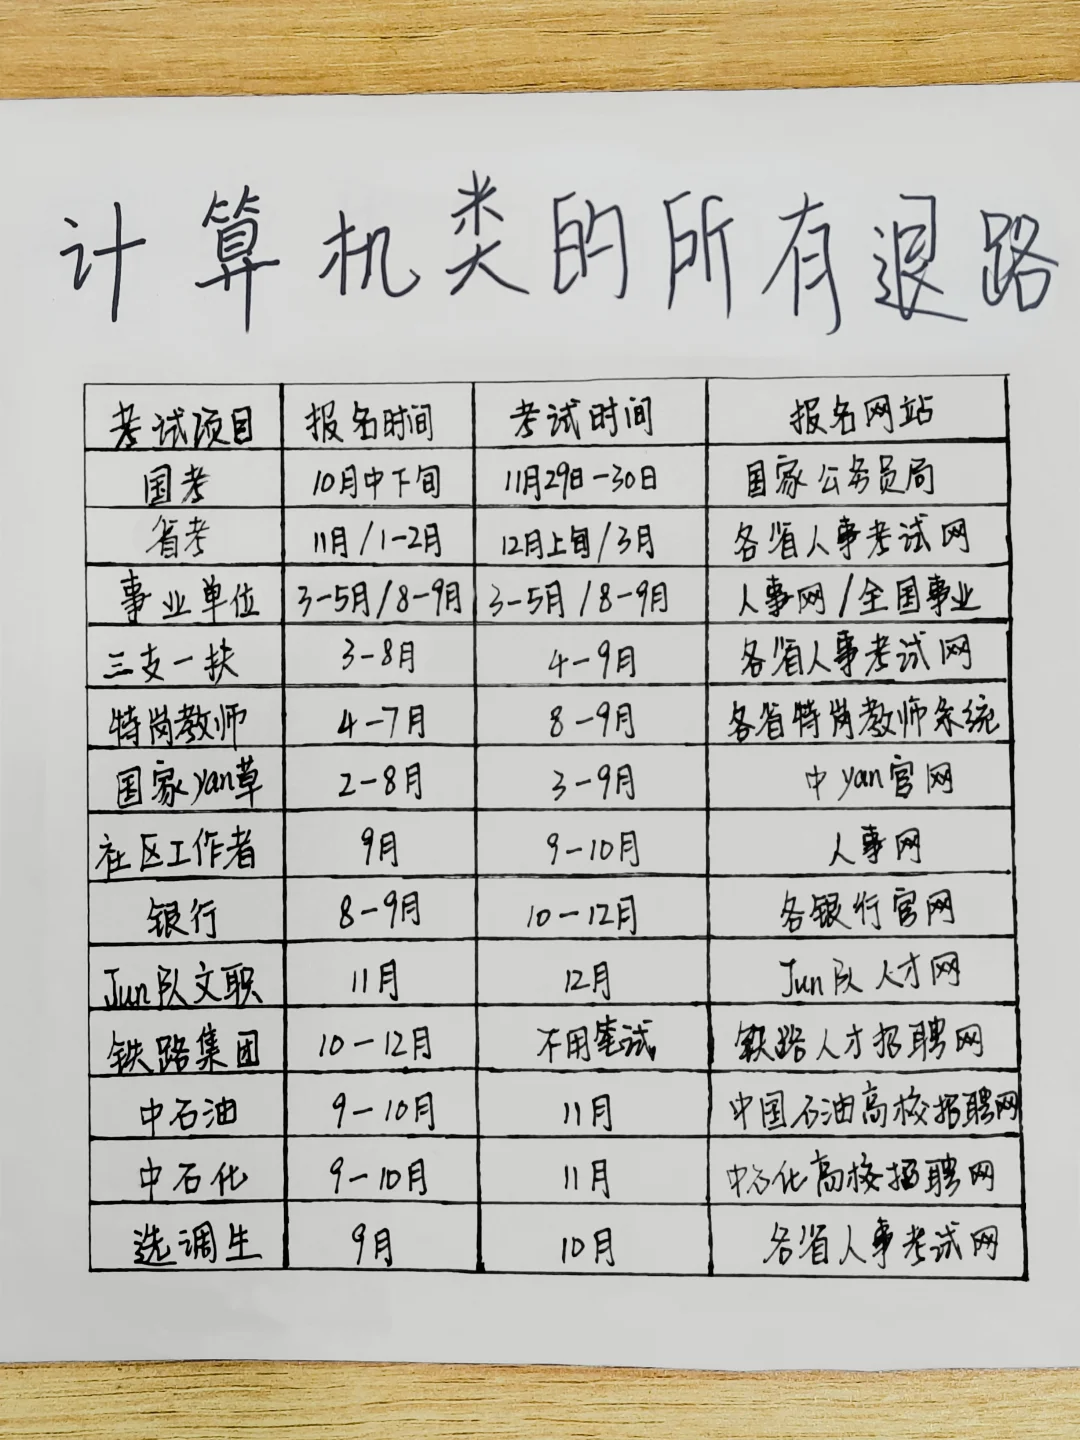 计算机类的所有退路
考试项目 报名时间 考试时间 报名网站
国考 10月中下旬 11月29日-30日 国家公务员局
省考 11月/1-2月 12月上旬/3月 各省人事考试网
事业单位 3-5月/8-9月 3-5月/8-9月 人事网/全国事业
三支一扶 3-8月 4-9月 各省人事考试网
特岗教师 4-7月 8-9月 各省特岗教师系统
国家yan草 2-8月 3-9月 中yan官网
社区工作者 9月 9-10月 人事网
银行 8-9月 10-12月 各银行官网
Jun队文职 11月 12月 Jun队人才网
铁路集团 10-12月 不用笔试 铁路人才招聘网
中石油 9-10月 11月 中国石油高校招聘网
中石化 9-10月 11月 中石化高校招聘网
选调生 9月 10月 各省人事考试网